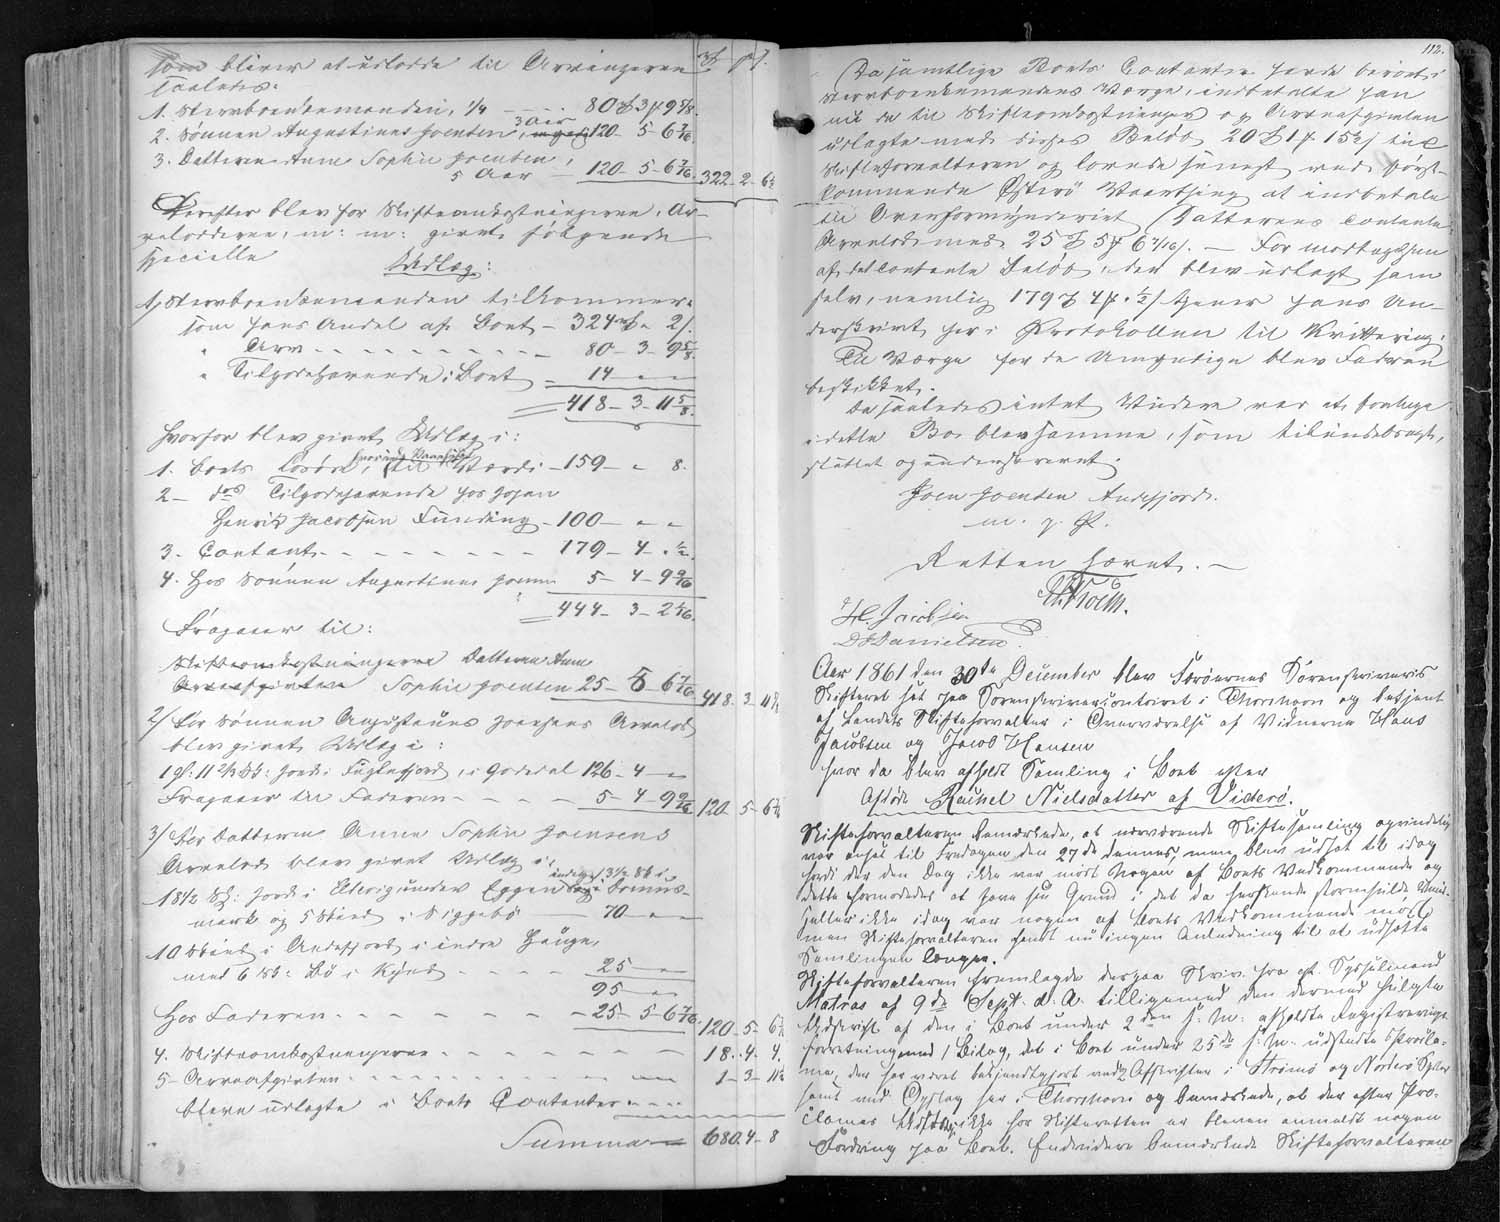 som bliver at udlodde til Arvingerne
saaledes:
1. Sterboenkemanden, 1/4 - - - - 80 rd 3 # 9 5/8
2. Sønnen Augustinus Joensen, 3 Aar 120 - 5 - 6 7/16
3. Datteren Anne Sophie Joensen,
5 Aar - 120 - 5 - 6 7/16 322 - 2 - 6 1/2
Derefter blev for Skifteomkostningerne, Ar-
velodderne, m: m: givet følgende
specielle Udlæg:
1, Sterboenkemanden tilkommer
som hans Andel af Boet - 324 rd " 2 s.
" Arv - - - - - - - - 80 - 3 - 9 5/8
" Tilgodehavende i Boet = 14 - " -
418 - 3 - 11 5/8
hvorfor blev givet Udlæg i:
1. Boets Løsøre, til Værdi - 159 - " 8.
2 - do Tilgodehavende hos Johan
Henrik Jacobsen Funding - 100 - " -
3. Contant - - - - - - 179 - 4 - " 1/2
4. Hos Sønnen Augustinus Joensen 5 - 4 - 9 9/16
444 - 3 - 2 1/16
Fragaaer til:
Skifteomkostningerne Datteren Anne
Arveafgiften Sophie Joensen 25 - 5 - 6 7/16 418 - 3 - 11 5/8
2/ For Sønnen Augustinus Joensens Arvelod
blev givet Udlæg i:
1 gl: 11 2/3 Sk: Jord i Fuglefjord, i Gardal 126 - 4 - "
Fragaaer til Faderen - - - - 5 - 4 - 9 9/16 120 - 5 - 6 7/16
3/ For Datteren Anne Sophie Joensens
Arvelod blev givet Udlæg i:
18 1/2 Sk: Jord i Elduvig under Eggen
mark og 5 Skind i Siggebø - 70 - " -
10 Skind i Andefjord i indre Hauge,
med 6 Sk: Bø i - - - - 25 - "
95 - "
Hos Faderen - - - - - - - 25 - 5 - 6 7/16 120 - 5 - 6 7/16
4. Skifteomkostningerne - - - - - - - 18 - 4 - 4.
5 - Arveafgiften - - - - - - - - 1 - 3 - 11 1/2
bleve udlagte i Boets Contanter - - -
Summa - 680. 4 - 8
112.
Da samtlige Boets Contanter havde beroet i
Sterboenkemandens Værge, indbetalte han
nu de til Skifteomkostninger og Arveafgiften
udlagte med deres Beløb 20 rd 1 # 15 1/2 s til
Skifteforvalteren og lovede senest ved først-
kommende Østerø Vaarthing at indbetale
til Overformynderiet Datterens contante
Arvelod med 25 rd 5 # 6 7/16 s. - For Modtagelsen
af det contante Beløb, der blev udlagt ham
selv, nemlig 179 rd 4 # " 1/2 s tjener hans Un-
derskrivt her i Protokollen til Kvittering.
Til Værge for de Umyndige blev Faderen
beskikket.
Da saaledes intet Videre var at foretage
i dette Bo, blev samme, som tilendebragt,
sluttet og underskrevet.
Joen Joensen Andefjord.
m. f. P.
Retten hævet. -
H. Jacobsen
D Danielsen
Aar 1861 den 30te December blev Færøernes Sorenskriveris
Skifteret sat paa Sorenskrivercontoiret i Thorshavn og betjent
af Landets Skifteforvalter i Overværelse af Vidnerne Hans
Jacobsen og Jacob Hansen
hvor da blev afholdt Samling i Boet efter
Afdøde Rachel Nielsdatter af Viderø.
Skifteforvalteren bemærkede, at nærværende Skiftesamling oprindelig
var ansat til Fredagen den 27de dennes, men blev udsat til idag
fordi der den Dag ikke var mødt Nogen af Boets Vedkommende og
dette formodedes at have sin Grund i det da herskende stormfulde Veir.
Heller ikke idag var nogen af Boets Vedkommende mødt
men Skifteforvalteren fandt nu ingen Anledning til at udsætte
Samlingen længer.
Skifteforvalteren fremlagde derpaa Skriv. fra Sysselmand
Matras af 9de Sept. d. A. tilligemed den dermed fulgte
Udskrift af den i Boet under 2den s. M. afholdte Registrerings-
forretning med 1 Bilag, det i Boet under 25de s. M. udstedte Procla-
ma, der har været bekjendtgjort ved Afskrifter i Strømø og Norderø Sysler
samt ved Opslag her i Thorshavn og bemærkede, at der efter Pro-
clamas Udstedelse ikke for Skifteretten er bleven anmeldt nogen
Fordring paa Boet. Endvidere bemærkede Skifteforvalteren